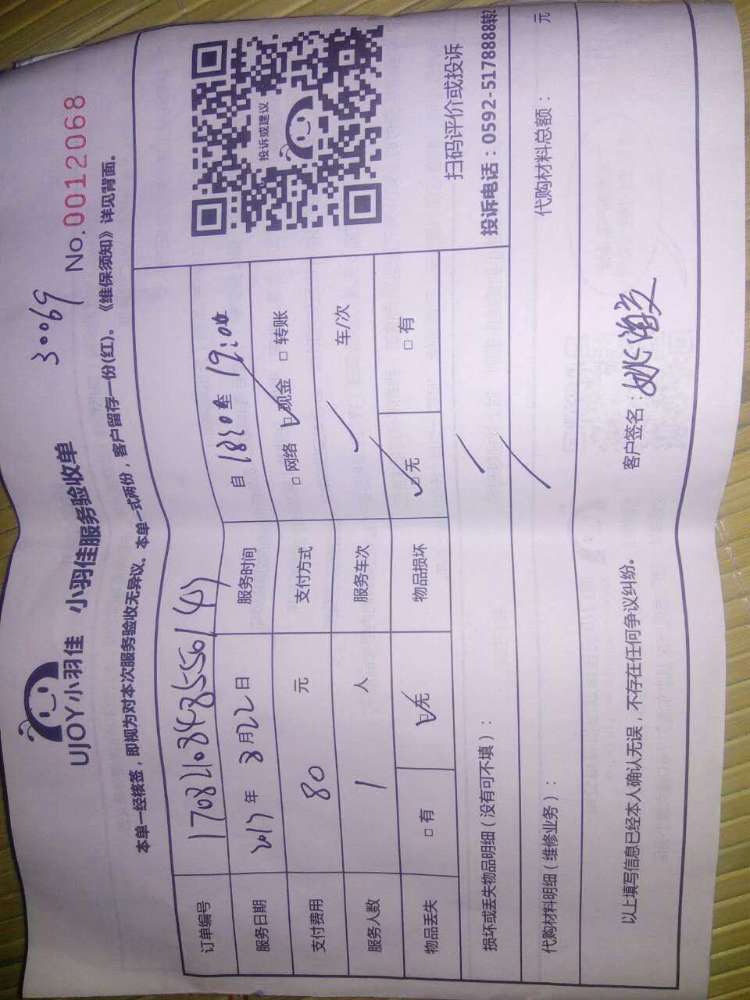 UJOY小羽佳 小羽佳服务验收单
30069
No.0012068
本单一经核签，即视为对本次服务验收无异议。本单一式两份，客户留存一份(红)。《维保须知》详见背面。
订单编号
服务日期 2017年8月22日 服务时间 自1820至19:00
支付费用 80元 支付方式 □网络 ☑现金 □转账
服务人数 1人 服务车次 车/次
物品丢失 □有 ☑无 物品损坏 ☑无 □有
损坏或丢失物品明细（没有可不填）：
代购材料明细（维修业务）： 代购材料总额： 元
以上填写信息已经本人确认无误，不存在任何争议纠纷。 客户签名：
投诉或建议
扫码评价或投诉
投诉电话：0592-5178888转2